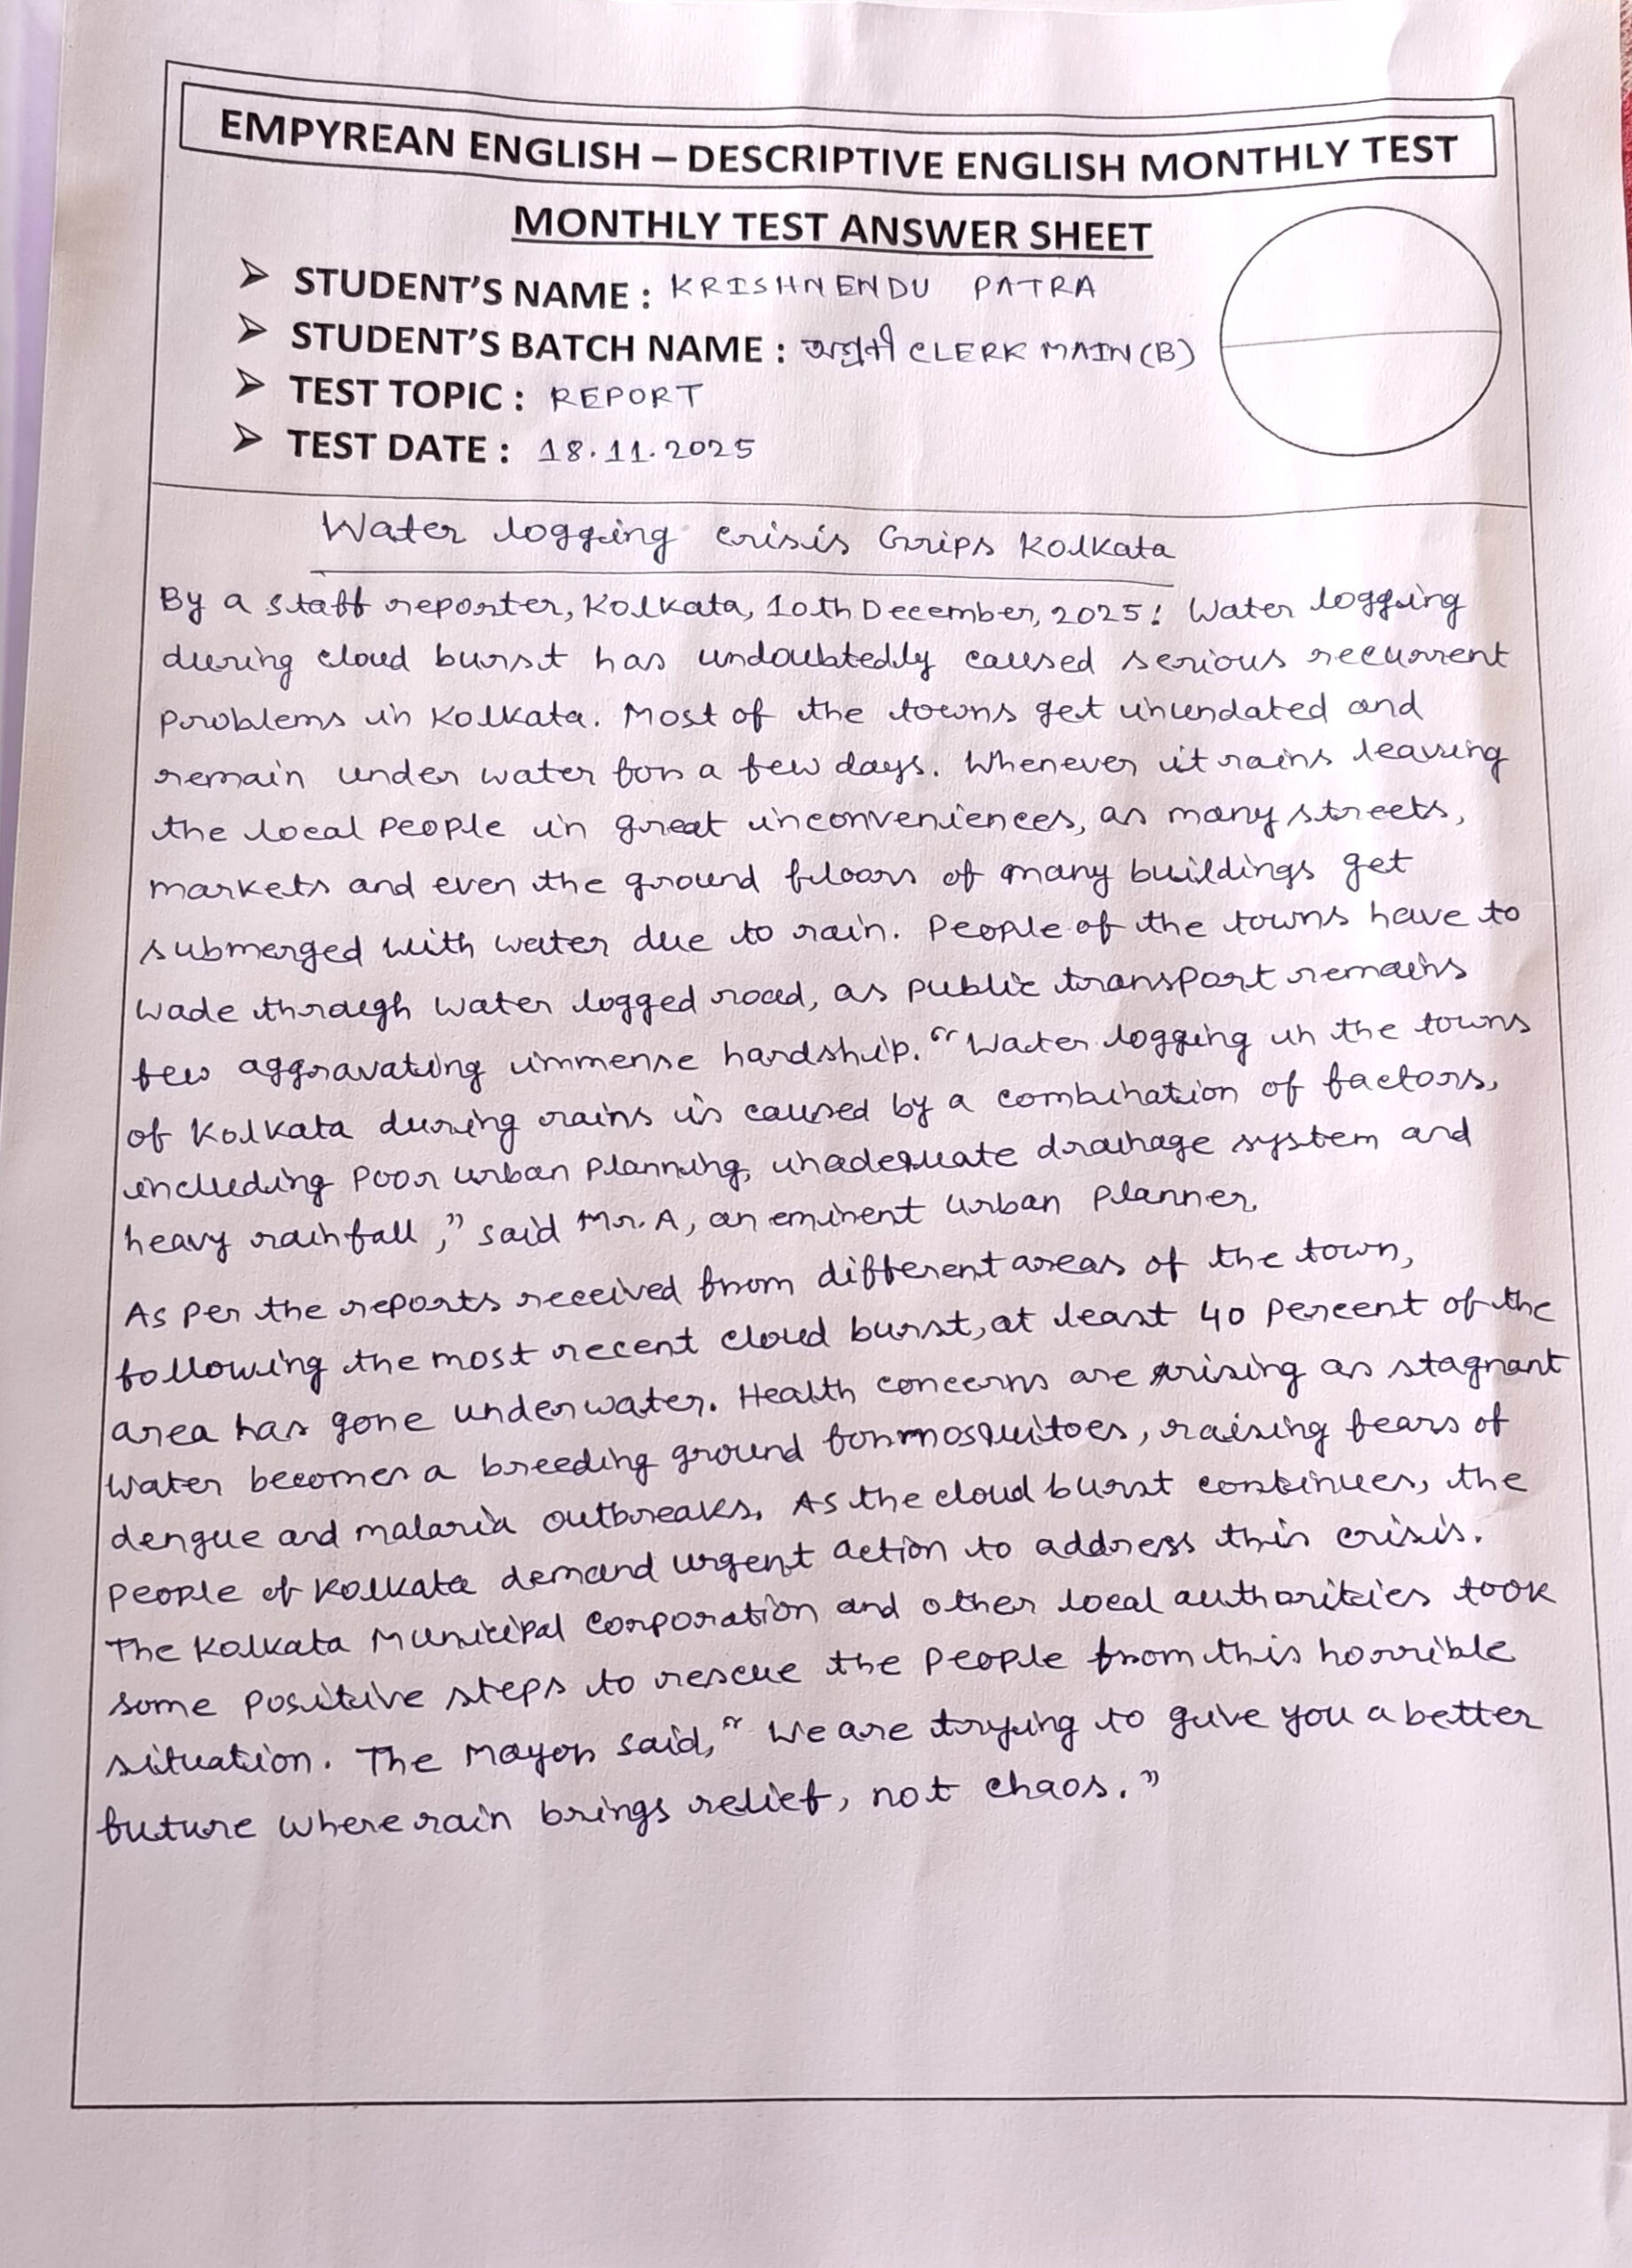 EMPYREAN ENGLISH – DESCRIPTIVE ENGLISH MONTHLY TEST
MONTHLY TEST ANSWER SHEET
➤ STUDENT'S NAME : KRISHNENDU PATRA
➤ STUDENT'S BATCH NAME : অগ্রণী CLERK MAIN (B)
➤ TEST TOPIC : REPORT
➤ TEST DATE : 18.11.2025
Water logging crisis Grips Kolkata
By a staff reporter, Kolkata, 10th December, 2025: Water logging
during cloud burst has undoubtedly caused serious recurrent
problems in Kolkata. Most of the towns get inundated and
remain under water for a few days. Whenever it rains leaving
the local people in great inconveniences, as many streets,
markets and even the ground floors of many buildings get
submerged with water due to rain. People of the towns have to
wade through water logged road, as public transport remains
few aggravating immense hardship. "Water logging in the towns
of Kolkata during rains is caused by a combination of factors,
including poor urban planning, inadequate drainage system and
heavy rainfall," said Mr. A, an eminent urban planner.
As per the reports received from different areas of the town,
following the most recent cloud burst, at least 40 percent of the
area has gone underwater. Health concerns are arising as stagnant
water becomes a breeding ground for mosquitoes, raising fears of
dengue and malaria outbreaks. As the cloud burst continues, the
people of Kolkata demand urgent action to address this crisis.
The Kolkata Municipal Corporation and other local authorities took
some positive steps to rescue the people from this horrible
situation. The Mayor said, "We are trying to give you a better
future where rain brings relief, not chaos."